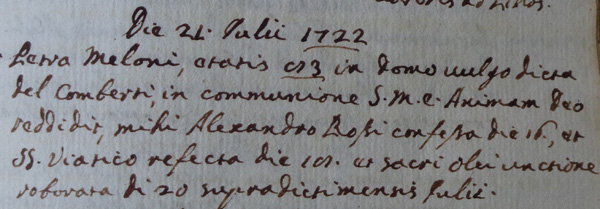 Die 21. Julii 1722
Petra Meloni, ætatis 63 in domo vulgo dicta
del Comberti, in communione S. M. E. Animam Deo
reddidit, mihi Alexandro Rosi confessa die 16, et
SS. Viatico refecta die et sacri olei unctione
roborata di 20 supradicti mensis Julii.